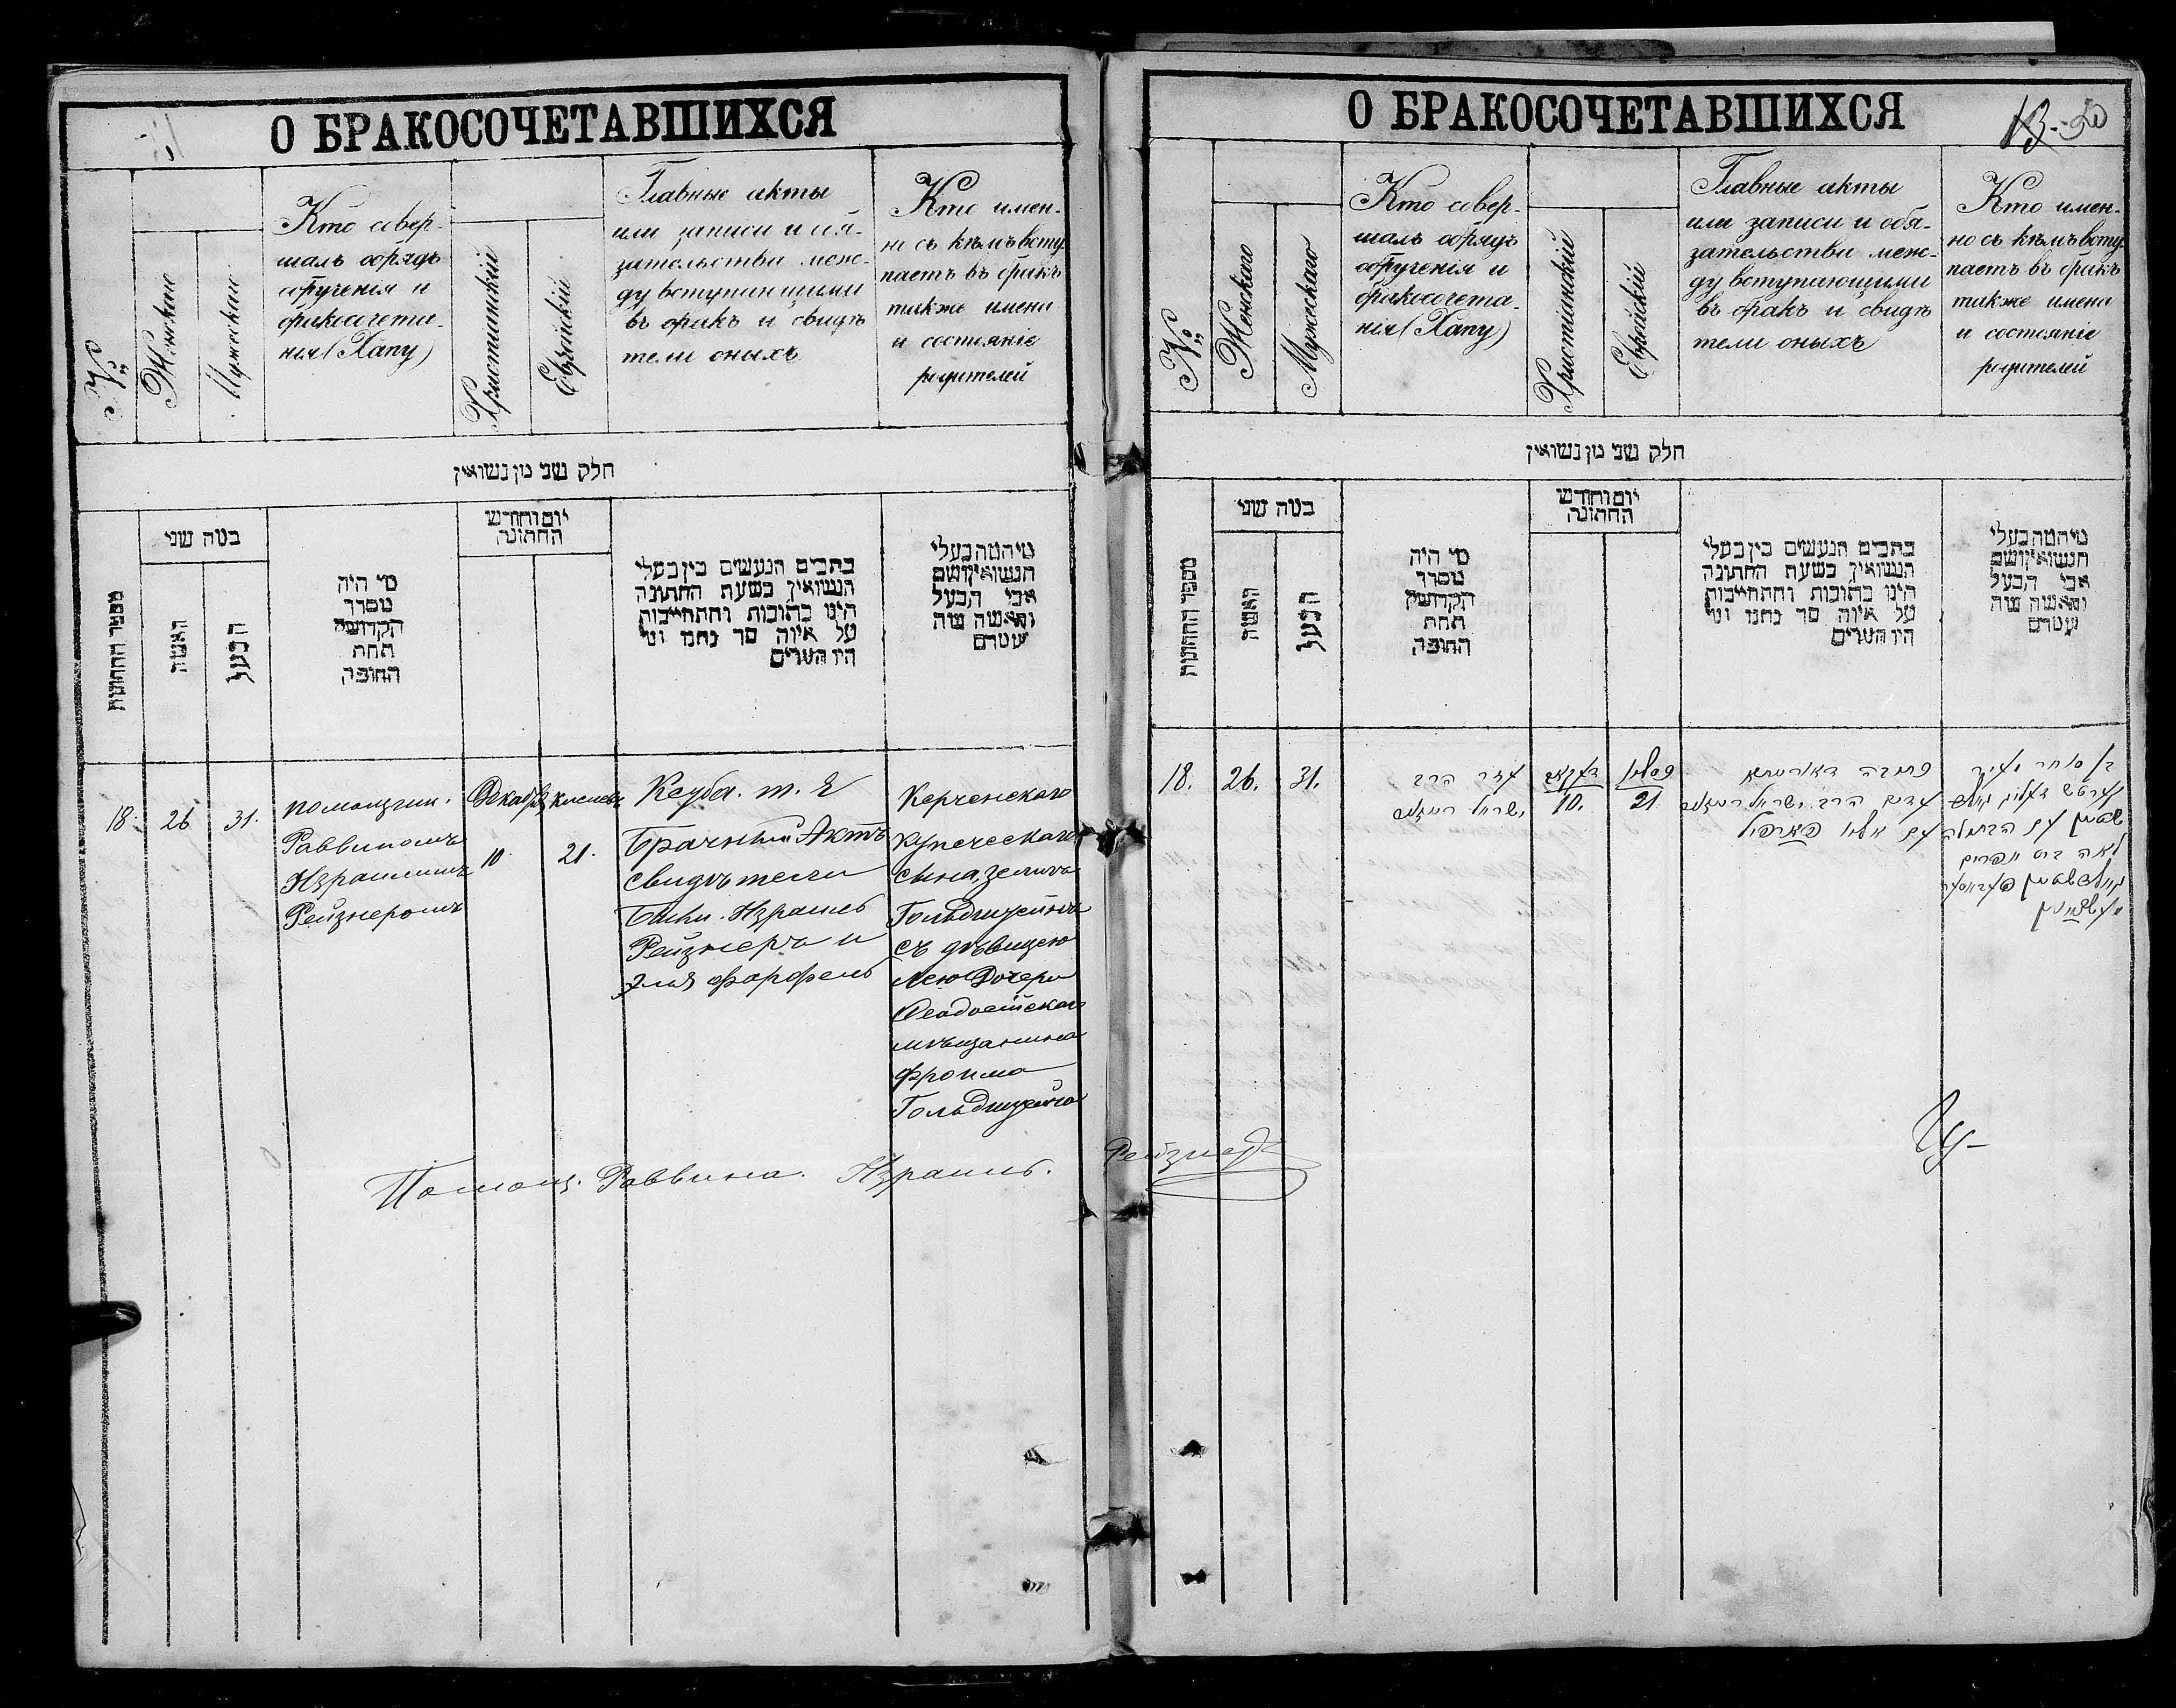 О БРАКОСОЧЕТАВШИХСЯ
№
Женскаго
Мужескаго
Кто совер-
шалъ обрядъ
обрученія и
бракосочета-
нія (Хапу)
Христіанскій
Еврейскій
Главные акты
или записи и обя-
зательства меж-
ду вступающими
въ бракъ и свидѣ
тели оныхъ
Кто имен-
но съ кѣмъ всту
паетъ въ бракъ
также имена
и состояніе
родителей
חלק שני מן נשואין
מספר החתונות
כמה שני
האשה
הבעל
מי היה
מסדר
הקדושין
תחת
החופה
יום וחודש
החתונה
כתבים הנעשים בין בעלי
הנשואין בשעת החתונה
היינו כתובות והתחייבות
על איזה סך נתנו ומי
היו העדים
מיהמה בעלי
הנשואין ושם
אבי הבעל
והאשה ומה
מעמדם
18.
26
31.
помощник.
Раввиномъ
Израилемъ
Рейзнеромъ
Декабря
10.
кислевъ
21.
Кеуба. т. е
Брачный Актъ
свидѣтели
были. Израиль
Рейзнеръ и
Эля Фарфель
Керченскаго
купеческаго
сына, Зелигъ
Гольдштейнъ
съ дѣвицею
Лею Дочерю
Ѳеодосійскаго
мѣщанина
Фроима
Гольдштейна
Помощ. Раввина. Израиль. Рейзнеръ
О БРАКОСОЧЕТАВШИХСЯ
№
Женскаго
Мужескаго
Кто совер-
шалъ обрядъ
обрученія и
бракосочета-
нія (Хапу)
Христіанскій
Еврейскій
Главные акты
или записи и обя-
зательства меж-
ду вступающими
въ бракъ и свидѣ
тели оныхъ
Кто имен-
но съ кѣмъ всту-
паетъ въ бракъ
также имена
и состояніе
родителей
חלק שני מן נשואין
מספר החתונות
כמה שני
האשה
הבעל
מי היה
מסדר
הקדושין
תחת
החופה
יום וחודש
החתונה
כתבים הנעשים בין בעלי
הנשואין בשעת החתונה
היינו כתובות והתחייבות
על איזה סך נתנו ומי
היו העדים
מיהמה בעלי
הנשואין ושם
אבי הבעל
והאשה ומה
מעמדם
18.
26.
31.
הרב
ישראל רייזנער
דעקאב
10.
כסליו
21
כתובה דאורייתא
עדים הרב ישראל רייזנער
עם אליו פארפיל
בן סוחר
קערטש זעליג גולד
שטיין עם הבתולה
לאה בת אפרים
גולדשטיין